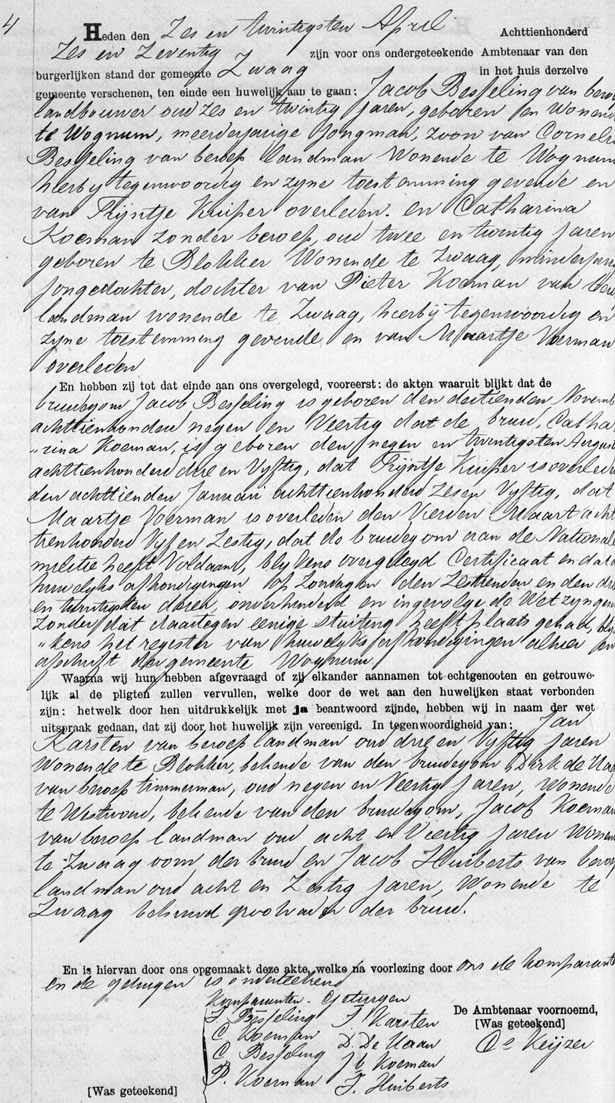 4
Heden den Zes en twintigsten April Achttienhonderd
Zes en Zeventig zijn voor ons ondergeteekende Ambtenaar van den
burgerlijken stand der gemeente Zwaag in het huis derzelve
gemeente verschenen, ten einde een huwelijk aan te gaan: Jacob Besseling van beroe
landbouwer oud zes en twintig jaren, geboren en wonend
te Wognum, meerderjarige jongman, zoon van Corneli
Besseling van beroep landman wonende te Wognum
hierby tegenwoordig en zyne toestemming gevende en
van Trijntje Kuiper overleden. en Catharina
Koeman zonder beroep, oud twee en twintig jaren
geboren te Blokker wonende te Zwaag, minderjari
jongedochter, dochter van Pieter Koeman van bero
landman wonende te Zwaag, hierby tegenwoordig en
zyne toestemming gevende en van Maartje Voerman
overleden
En hebben zij tot dat einde aan ons overgelegd, vooreerst: de akten waaruit blijkt dat de
bruidegom Jacob Besseling is geboren den dertienden Novemb
achttienhonderd negen en Veertig dat de bruid, Catha
"rina Koeman, is geboren den negen en twintigsten August
achttienhonderd drie en Vyftig, dat Trijntje Kuiper is overled
den achttienden Januari achttienhonderd zes en Vyftig, dat
Maartje Voerman is overleden den Vierden Maart acht
tienhonderd Vyf en Zestig, dat de bruidegom aan de Nationale
militie heeft Voldaan, blykens overgelegd Certificaat en dat d
huwelyks afkondigingen op Zondagen den Zestienden en den dri
en twintigsten dezer, onverhinderd en ingevolge de Wet zyn ge
zonder dat daartegen eenige stuiting heeft plaats gehad, bly
"kens het register van huwelyksafkondigingen alhier en
afschrift der gemeente Wognum.
Waarna wij hun hebben afgevraagd of zij elkander aannamen tot echtgenooten en getrouwe-
lijk al de pligten zullen vervullen, welke door de wet aan den huwelijken staat verbonden
zijn: hetwelk door hen uitdrukkelijk met ja beantwoord zijnde, hebben wij in naam der wet
uitspraak gedaan, dat zij door het huwelijk zijn vereenigd. In tegenwoordigheid van: Jan
Karsten van beroep landman oud drie en Vyftig jaren
wonende te Blokker, bekende van den bruidegom, Dirk de Haa
van beroep timmerman, oud negen en Veertig jaren, wonende
te Westwoud, bekende van den bruidegom, Jacob Koeman
van beroep landman oud acht en Veertig jaren wonen
te Zwaag oom der bruid en Jacob Huiberts van beroep
landman oud acht en Zestig jaren, wonende te
Zwaag behuwd grootvader der bruid.
En is hiervan door ons opgemaakt deze akte, welke na voorlezing door ons de komparante
en de getuigen is onderteekend
Komparanten. Getuigen
J Besseling J. Karsten
C Koeman D. De Haan
C Besseling Jb Koeman
P. Koeman J. Huiberts
De Ambtenaar voornoemd,
[Was geteekend]
Cs Keijzer
[Was geteekend]